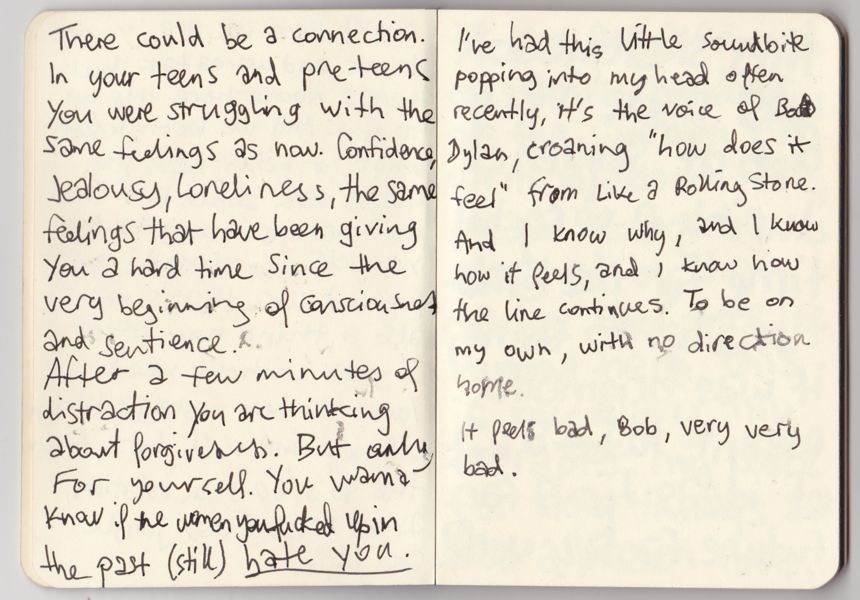 There could be a connection.
In your teens and pre-teens
you were struggling with the
same feelings as now. Confidence,
Jealousy, Loneliness, the same
feelings that have been giving
you a hard time since the
very beginning of consciousness
and sentience.
After a few minutes of
distraction you are thinking
about forgiveness. But only
For yourself. You wanna
know if the women you fucked up in
the past (still) hate you.
I've had this little soundbite
popping into my head often
recently, it's the voice of Bob
Dylan, croaning "how does it
feel" from Like a Rolling Stone.
And I know why, and I know
how it feels, and I know how
the line continues. To be on
my own, with no direction
home.
It feels bad, Bob, very very
bad.